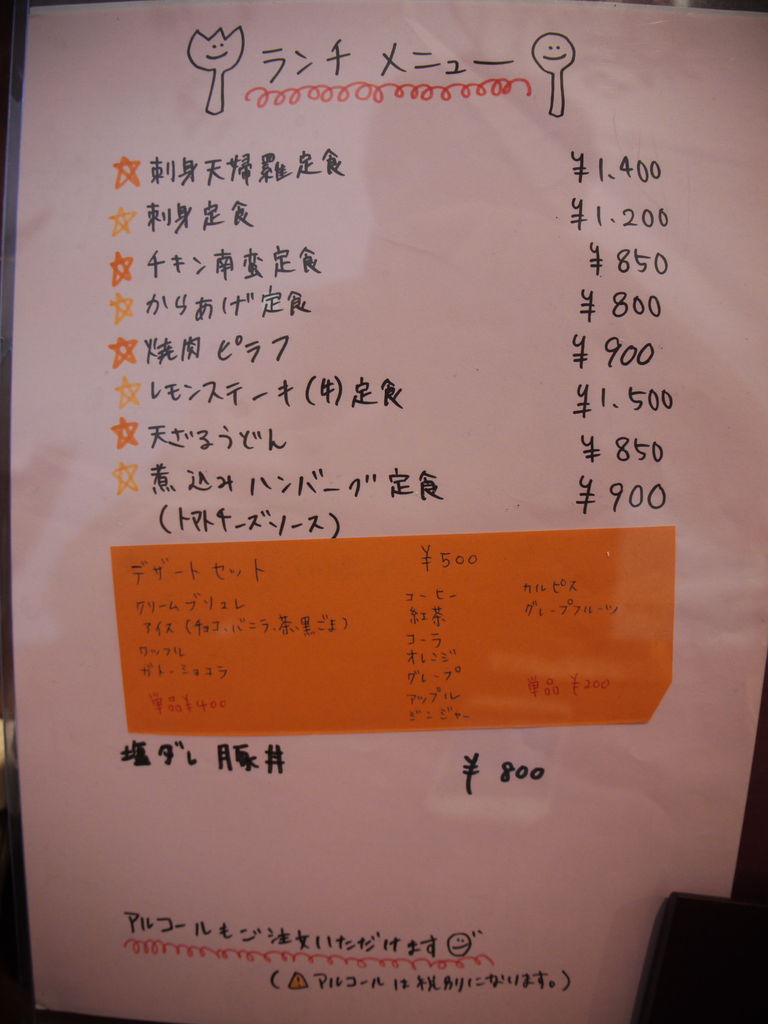 ランチ メニュー
刺身天婦羅定食 ¥1.400
刺身定食 ¥1.200
チキン南蛮定食 ¥850
からあげ定食 ¥800
焼肉ピラフ ¥900
レモンステーキ(牛)定食 ¥1.500
天ざるうどん ¥850
煮込みハンバーグ定食 ¥900
(トマトチーズソース)
デザートセット ¥500
クリームブリュレ
アイス(チョコ、バニラ、茶、黒ごま)
ワッフル
ガトーショコラ
単品¥400
コーヒー
紅茶
コーラ
オレンジ
グレープ
アップル
ジンジャー
カルピス
グレープフルーツ
単品 ¥200
塩ダレ豚丼 ¥800
アルコールもご注文いただけます
(⚠アルコールは税別になります。)